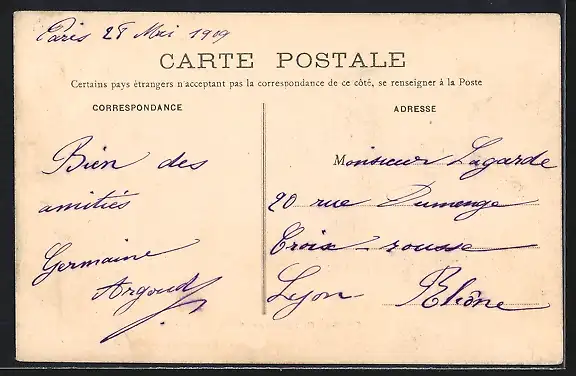 Paris 28 Mai 1909
CARTE POSTALE
Certains pays étrangers n'acceptant pas la correspondance de ce côté, se renseigner à la Poste
CORRESPONDANCE
ADRESSE
Bien des
amitiés
Germaine
Argoud
Monsieur Lagarde
20 rue Dumenge
Croix-rousse
Lyon Rhône